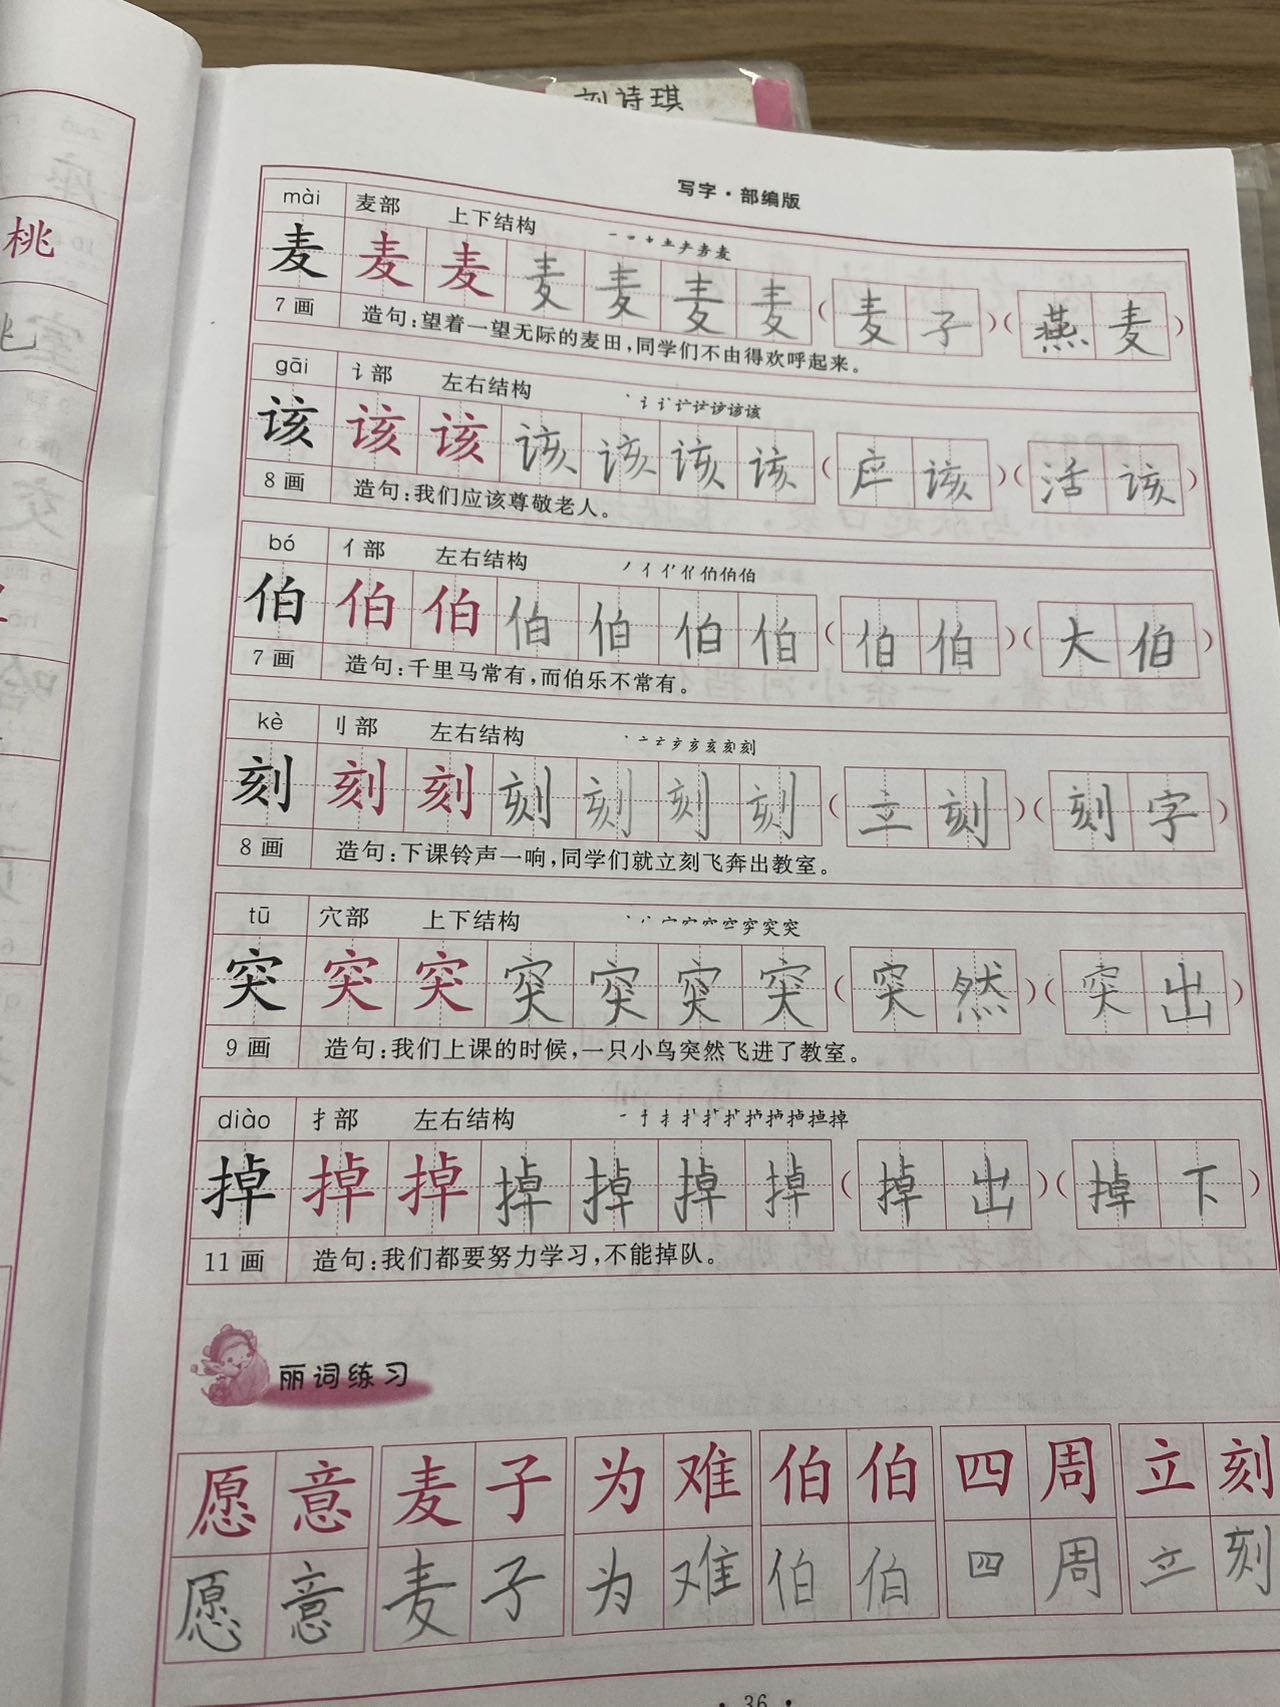 刘诗琪
写字·部编版
桃
mài 麦部 上下结构
麦 麦 麦 麦 麦 麦 麦 (麦子)(燕麦)
7画 造句:望着一望无际的麦田,同学们不由得欢呼起来。
gāi 讠部 左右结构
该 该 该 该 该 该 该 (应该)(活该)
8画 造句:我们应该尊敬老人。
bó 亻部 左右结构
伯 伯 伯 伯 伯 伯 伯 (伯伯)(大伯)
7画 造句:千里马常有,而伯乐不常有。
kè 刂部 左右结构
刻 刻 刻 刻 刻 刻 刻 (立刻)(刻字)
8画 造句:下课铃声一响,同学们就立刻飞奔出教室。
tū 穴部 上下结构
突 突 突 突 突 突 突 (突然)(突出)
9画 造句:我们上课的时候,一只小鸟突然飞进了教室。
diào 扌部 左右结构
掉 掉 掉 掉 掉 掉 掉 (掉出)(掉下)
11画 造句:我们都要努力学习,不能掉队。
丽词练习
愿意 麦子 为难 伯伯 四周 立刻
愿意 麦子 为难 伯伯 四周 立刻
·36·